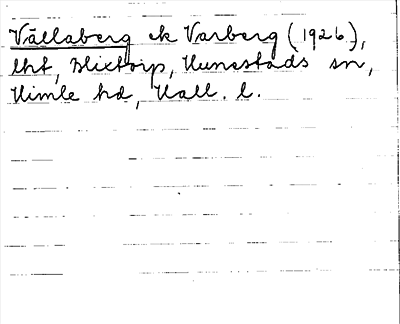 Vällaberg ek Varberg (1926),
lht, Blixtorp, Hunestads sn,
Himle hd, Hall. l.